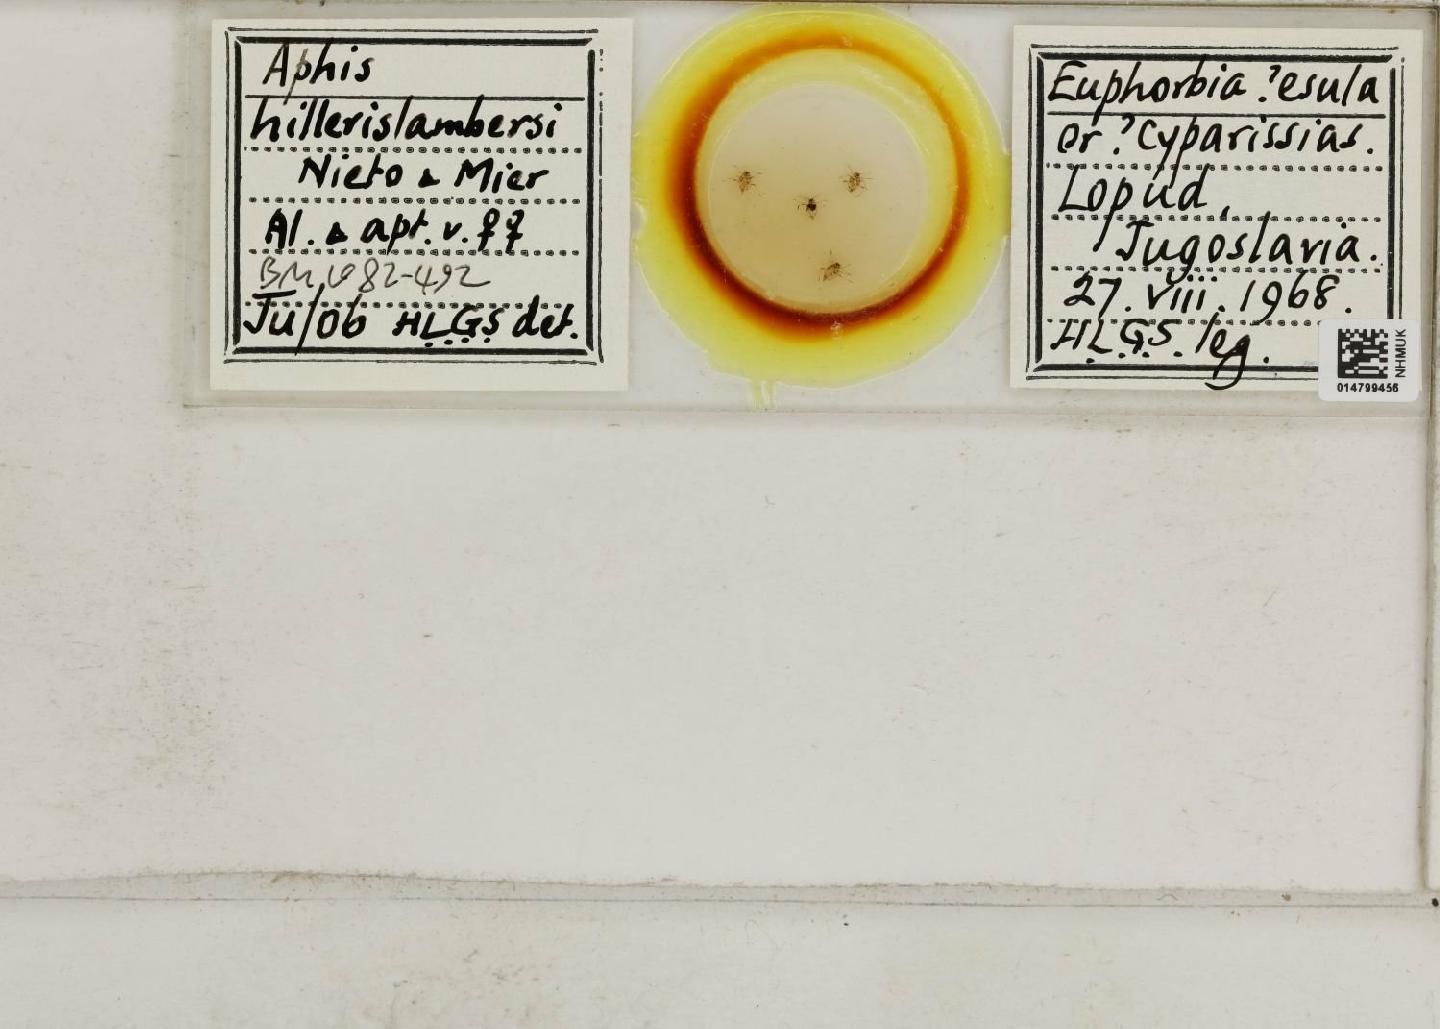 Aphis
hillerislambersi
Nieto & Mier
Al. & apt. v. ♀♀
BM 1982-492
Ju/06 HLGS det.
Euphorbia ?esula
or ?Cyparissias.
Lopud,
Jugoslavia.
27. viii. 1968.
HLGS. leg.
NHMUK
014799456